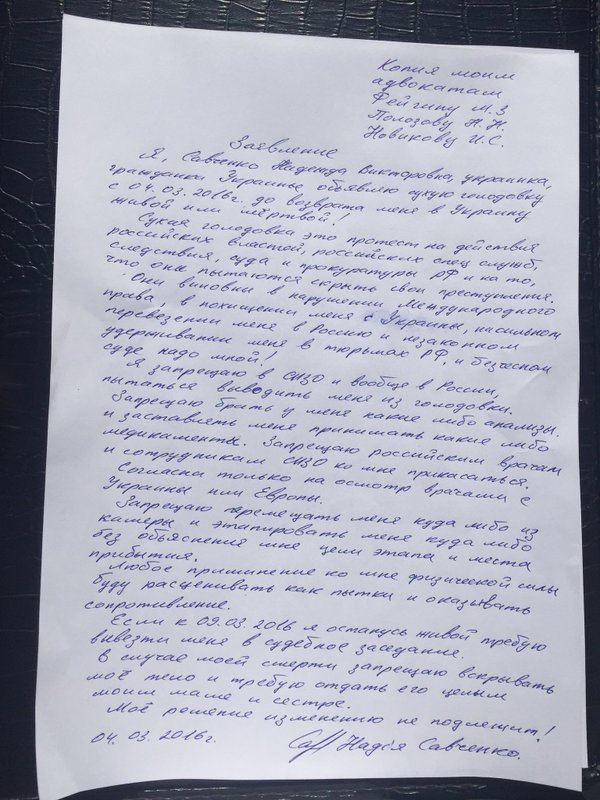 Копия моим
адвокатам
Фейгину М.З
Полозову Н.Н.
Новикову И.С.
Заявление
Я, Савченко Надежда Викторовна, украинка,
гражданка Украины объявляю сухую голодовку
с 04.03.2016г. до возврата меня в Украину
живой или мёртвой!
Сухая голодовка это протест на действия
российских властей, российских спец служб,
следствия, суда и прокуратуры РФ и на то,
что они пытаются скрыть свои преступления.
Они виновны в нарушении Международного
права, в похищении меня с Украины, насильном
перевезении меня в Россию и незаконном
удерживании меня в тюрьмах РФ, и безчесном
суде надо мной!
Я запрещаю в СИЗО и вообще в России,
пытаться выводить меня из голодовки.
Запрещаю брать у меня какие либо анализы
и заставлять меня принимать какие либо
медикаменты. Запрещаю российским врачам
и сотрудникам СИЗО ко мне прикасаться.
Согласна только на осмотр врачами с
Украины или Европы.
Запрещаю перемещать меня куда либо из
камеры и этапировать меня куда либо
без объяснения мне цели этапа и места
прибытия.
Любое приминение ко мне физической силы
буду расценивать как пытки и оказывать
сопротивление.
Если к 09.03.2016 я останусь живой требую
вывезти меня в судебное заседание.
В случае моей смерти запрещаю вскрывать
моё тело и требую отдать его целым
моим маме и сестре.
Моё решение изменению не подлежит!
04.03.2016г. Надія Савченко.